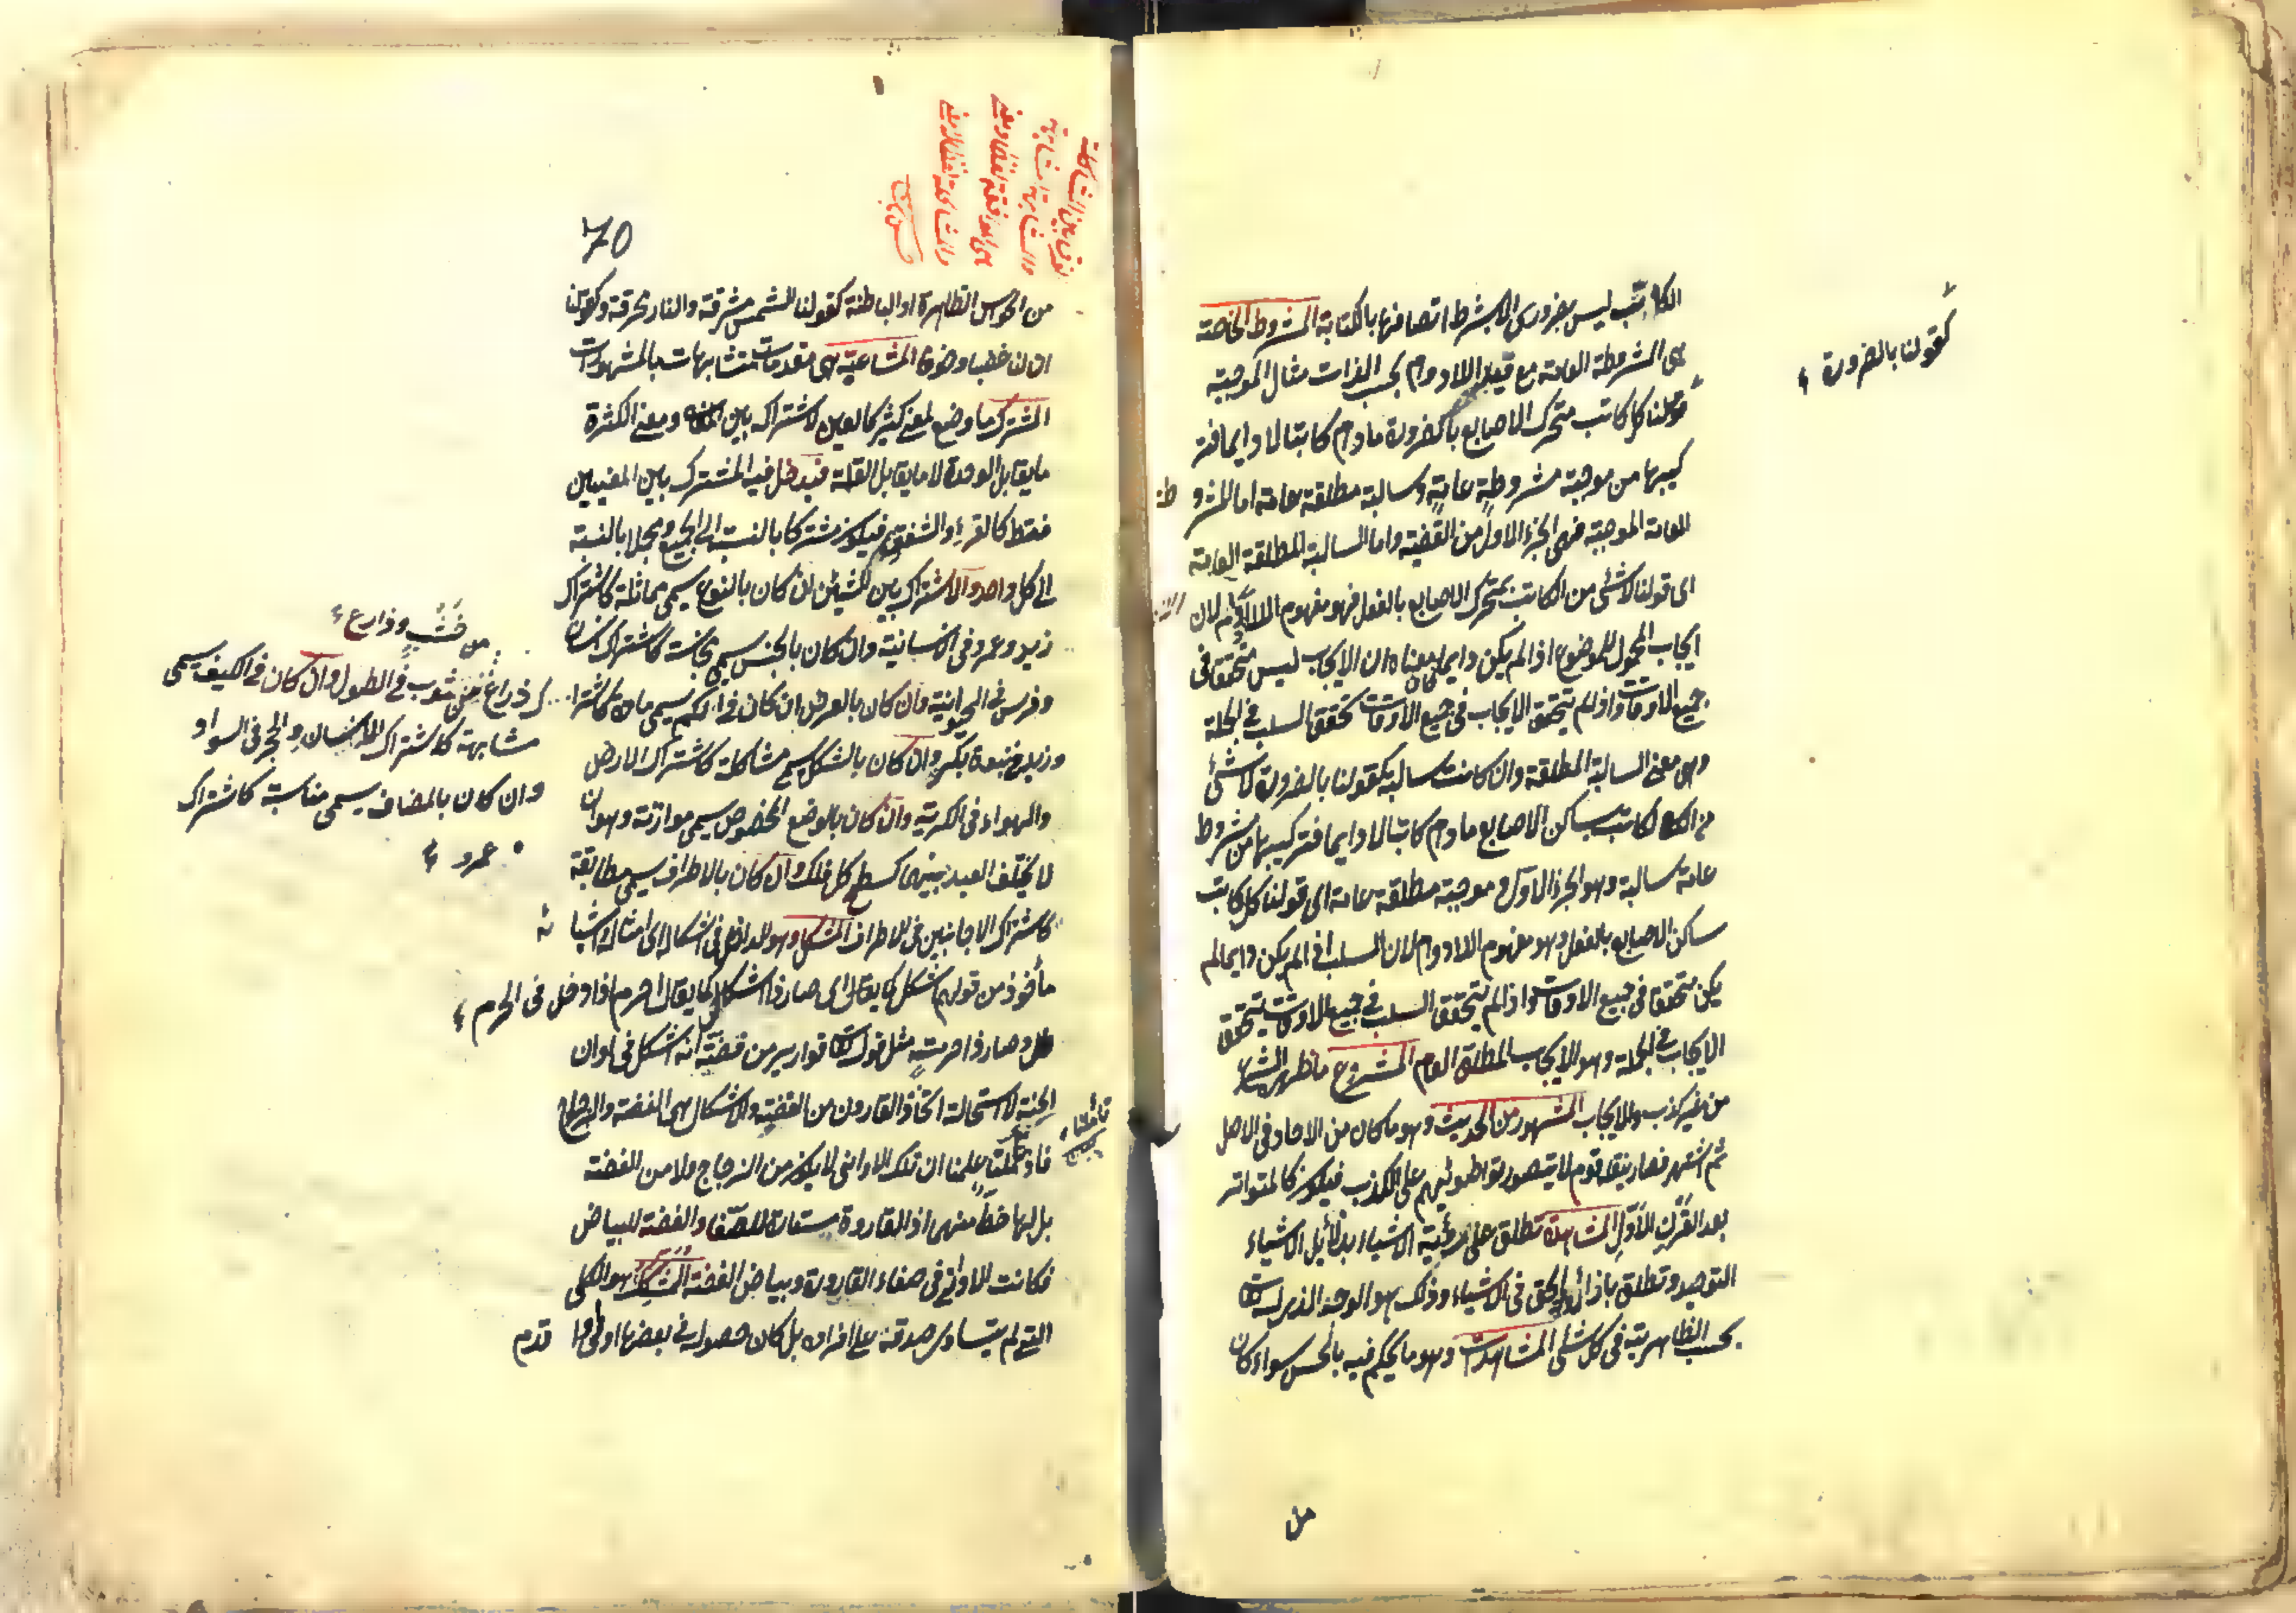 الكاتب ليس بضرورى الا بشرط اتصافها بالكتابة المشروطة الخاصة
هى المشروطة العامة مع قيد اللادوام بحسب الذات مثال الموجبة
قولنا كل كاتب متحرك الاصابع بالضرورة مادام كاتبا لا دايما فتر
كيبها من موجبة مشروطة عامة وسالبة مطلقة عامة اما المشرو طة
العامة الموجبة فهى الجزء الاول من القضية واما السالبة المطلقة العامة
اى قولنا لا شئ من الكاتب بمتحرك الاصابع بالفعل فهو مفهوم اللادوام لان
ايجاب المحمول للموضوع اذا لم يكن دايما كان معناه ان الايجاب ليس متحققا فى
جميع الاوقات واذا لم يتحقق الايجاب فى جميع الاوقات تحقق السلب فى الجملة
وهى معنى السالبة المطلقة وان كانت سالبة كقولنا بالضرورة لا شئ
من الكاتب بساكن الاصابع مادام كاتبا لا دايما فتركيبها من مشروطة
عامة سالبة وهو الجزء الاول و موجبة مطلقة عامة اى قولنا كل كاتب
ساكن الاصابع بالفعل وهو مفهوم اللادوام لان السلب اذا لم يكن دايما لم
يكن متحققا فى جميع الاوقات واذا لم يتحقق السلب فى جميع الاوقات يتحقق
الايجاب فى الجملة وهو الايجاب المطلق العام المشروع ما ظهره الشرع
من غير ندب ولا ايجاب المشهور من الحديث وهو ما كان من الاحاد فى الاصل
ثم اشتهر فصار ينقله قوم لا يتصور تواطوئهم على الكذب فيكون كالمتواتر
بعد القرن الاول المشاهدة تطلق على رؤية الاشياء بدلائل الاشياء
التوحيد وتطلق بازائه الحق فى الاشياء وذلك هو الوجه الذى له
بحسب الظاهرية فى كل شئ المشاهدات وهو ما يحكم فيه بالحس سواء كان
من
كقولنا بالضرورة
70
من الحواس الظاهرة او الباطنة كقولنا الشمس مشرقة والنار محرقة وكقولنا
ان لنا غضبا وخوفا المشاغبة هى مقدمات متشابهات بالمشهورات
المشترك ما وضع لمعنى كثير كالعين لاشتراكه بين ومعنى الكثرة
ما يقابل الوحدة لا ما يقابل القلة فيدخل فيه المشترك بين المعنيين
فقط كالقرء والشفق فيكون مشتركا بالنسبة الى الجميع ومجملا بالنسبة
الى كل واحد والاشتراك بين الشيئين ان كان بالنوع يسمى مماثلة كاشتراك
زيد وعمرو فى الانسانية وان كان بالجنس يسمى مجانسة كاشتراك انسان
وفرس فى الحيوانية وان كان بالعرض ان كان فى الكم يسمى مادة كاشترا
ك ذراع من خشب وذراع من ثوب فى الطول وان كان فى الكيف يسمى
مشابهة كاشتراك الانسان والحجر فى السواد
وان كان بالمضاف يسمى مناسبة كاشتراك
زيد وعمرو فى بنوة بكر وان كان بالشكل يسمى مشاكلة كاشتراك الارض
والهواء فى الكرية وان كان بالوضع المخصوص يسمى موازنة وهو ان
لا يختلف البعد بينهما كسطح كل فلك وان كان بالاطراف يسمى مطابقة
كاشتراك الاجانبين فى الاطراف المشكل وهو الداخل فى اشكاله اى امثاله واشباهه
مأخوذ من قولهم اشكل كما يقال اى صار ذا اشكال كما يقال احرم اذا دخل فى الحرم
وصار ذا حرمة مثل قوله قوارير من فضة انه اشكل فى اوان
الجنة لاستحالة اتخاذ القارون من الفضة والاشكال هى الفضة والزجاج
فاذا تأملنا علمنا ان تلك الاوانى لا يكون من الزجاج ولا من الفضة
بل لها حظ منهما اذ القارورة يستعارة للصفاء والفضة للبياض
فكانت الاوانى فى صفاء القارورة وبياض الفضة المشكك هو الكلى
الذى لم يتساوى صدقه على افراده بل كان حصوله فى بعضها اولى او اقدم